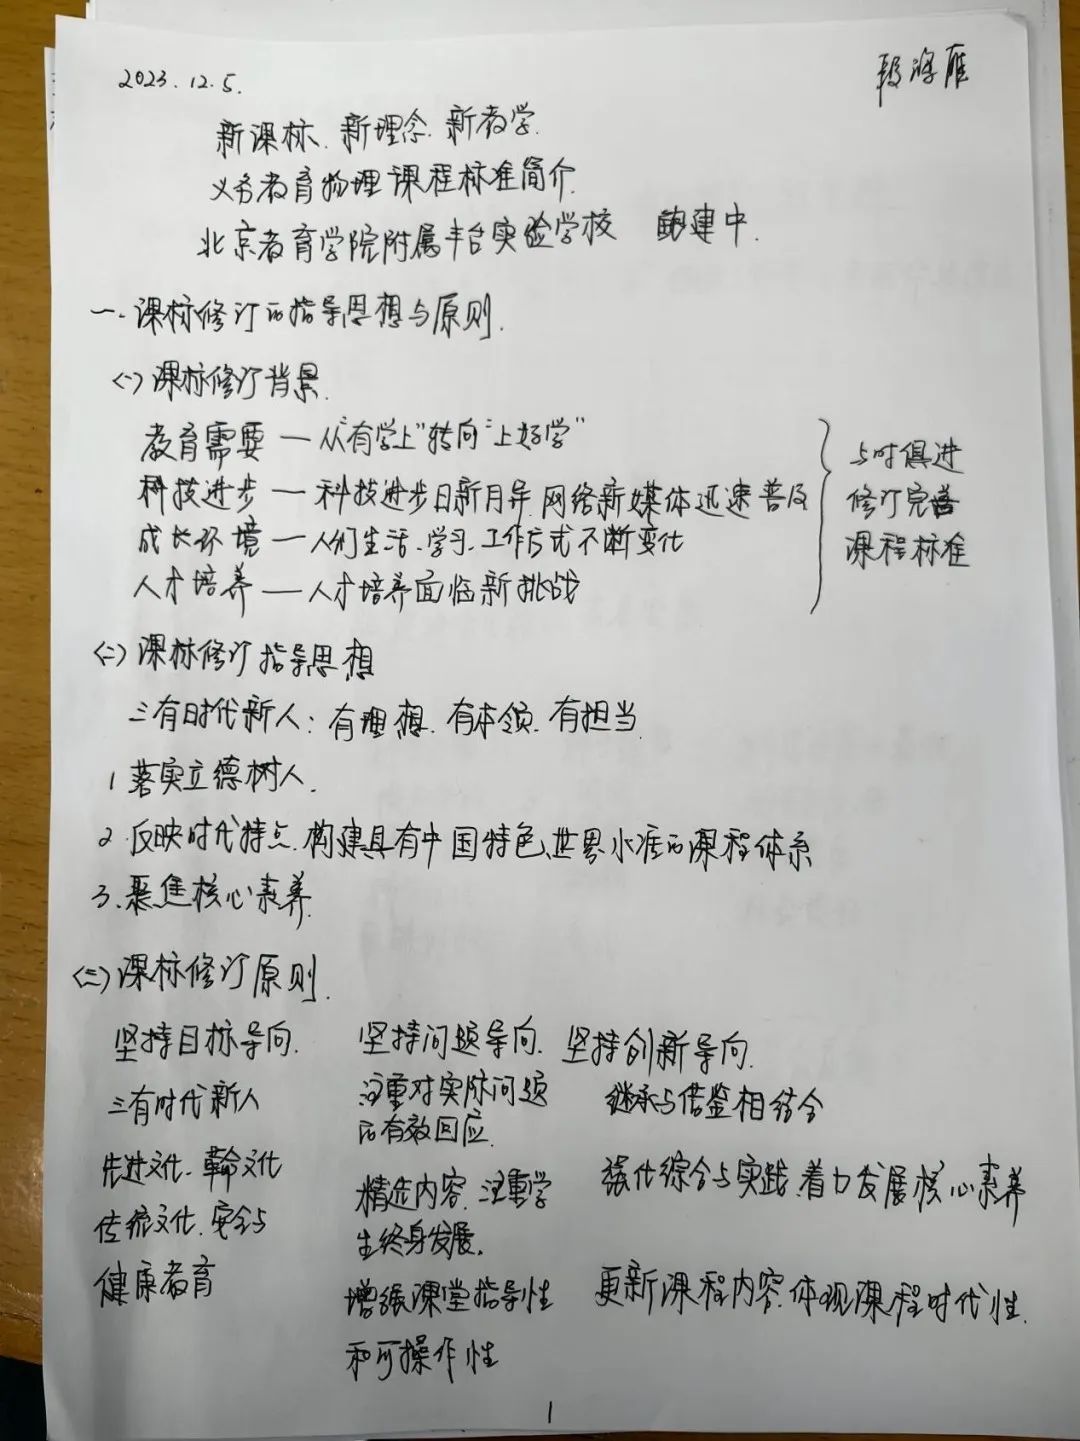 2023.12.5.
段海雁
新课标、新理念、新教学.
义务教育物理课程标准简介
北京教育学院附属丰台实验学校 鲍建中.
一.课标修订的指导思想与原则.
<一>课标修订背景.
教育需要 — 从"有学上"转向"上好学"
科技进步 — 科技进步日新月异 网络新媒体迅速普及
成长环境 — 人们生活、学习、工作方式不断变化
人才培养 — 人才培养面临新挑战
与时俱进
修订完善
课程标准
<二>课标修订指导思想
三有时代新人: 有理想、有本领、有担当.
1 落实立德树人.
2.反映时代特点.构建具有中国特色、世界水准的课程体系
3.聚焦核心素养.
<三>课标修订原则.
坚持目标导向.
三有时代新人
先进文化、革命文化
传统文化、安全与
健康教育
坚持问题导向.
注重对实际问题
的有效回应.
精选内容.注重学
生终身发展.
增强课堂指导性
和可操作性
坚持创新导向.
继承与借鉴相结合
强化综合与实践.着力发展核心素养
更新课程内容.体现课程时代性.
1